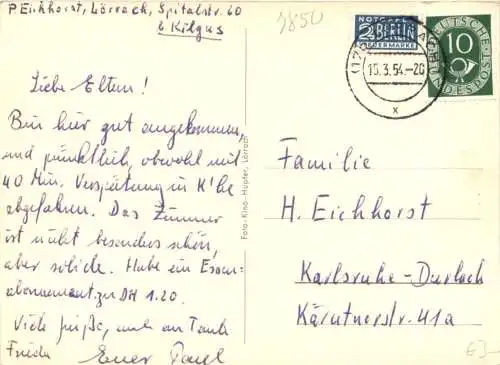 P Eichhorst, Lörrach, Spitalstr. 60
b Kilgus
Liebe Eltern!
Bin hier gut angekommen,
und pünktlich, obwohl mit
40 Min. Verspätung in K'he
abgefahren. Das Zimmer
ist nicht besonders schön,
aber solide. Habe ein Essen-
abonnement zu DM 1.20.
Viele Grüße, auch an Tante
Frieda Euer Paul
Foto-Kino-Hupfer, Lörrach
3850
NOTOPFER
2 BERLIN
STEUERMARKE
DEUTSCHE
BUNDESPOST
10
15.3.54.-20
x
Familie
H. Eichhorst
Karlsruhe-Durlach
Kärntnerstr. 41a